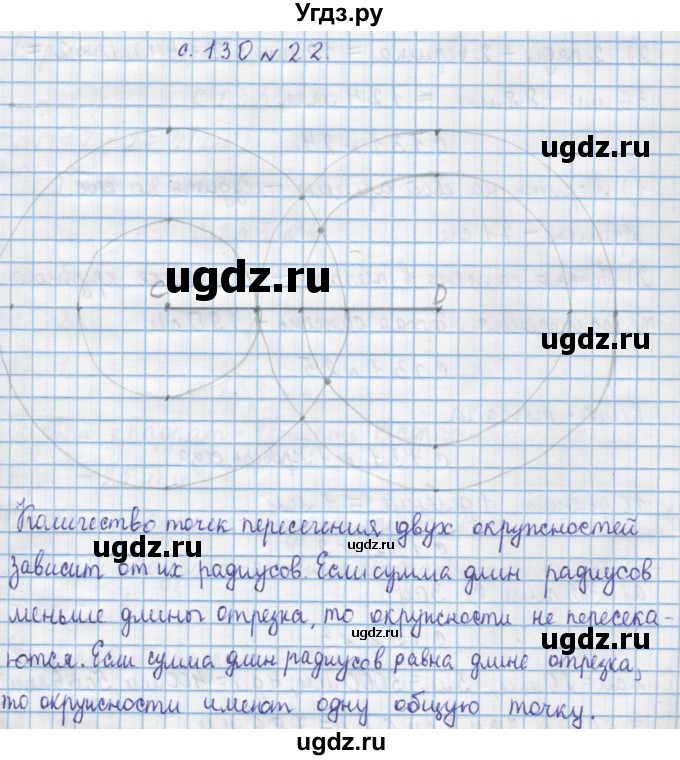 Угдз.ру
с. 130 № 22.
ugdz.ru
ugdz.ru
C
D
ugdz.ru
ugdz.ru
ugdz.ru
Количество точек пересечения двух окружностей
ugdz.ru
ugdz.ru
зависит от их радиусов. Если сумма длин радиусов
меньше длины отрезка, то окружности не пересека-
ugdz.ru
ugdz.ru
ugdz.ru
ются. Если сумма длин радиусов равна длине отрезка,
то окружности имеют одну общую точку.
ugdz.ru